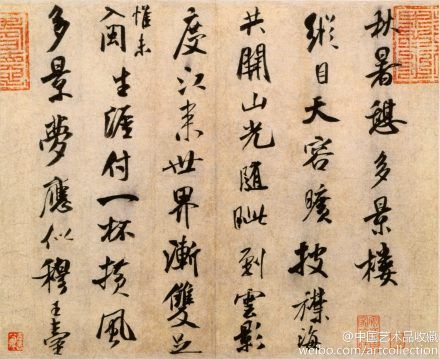 秋暑憩多景樓
縱目天容曠披襟海
共開山光隨眦到雲影
度江来世界漸雙足
惟未
生涯付一杯横風
多景夢應似穆王臺
@中国艺术品收藏
weibo.com/artcollection